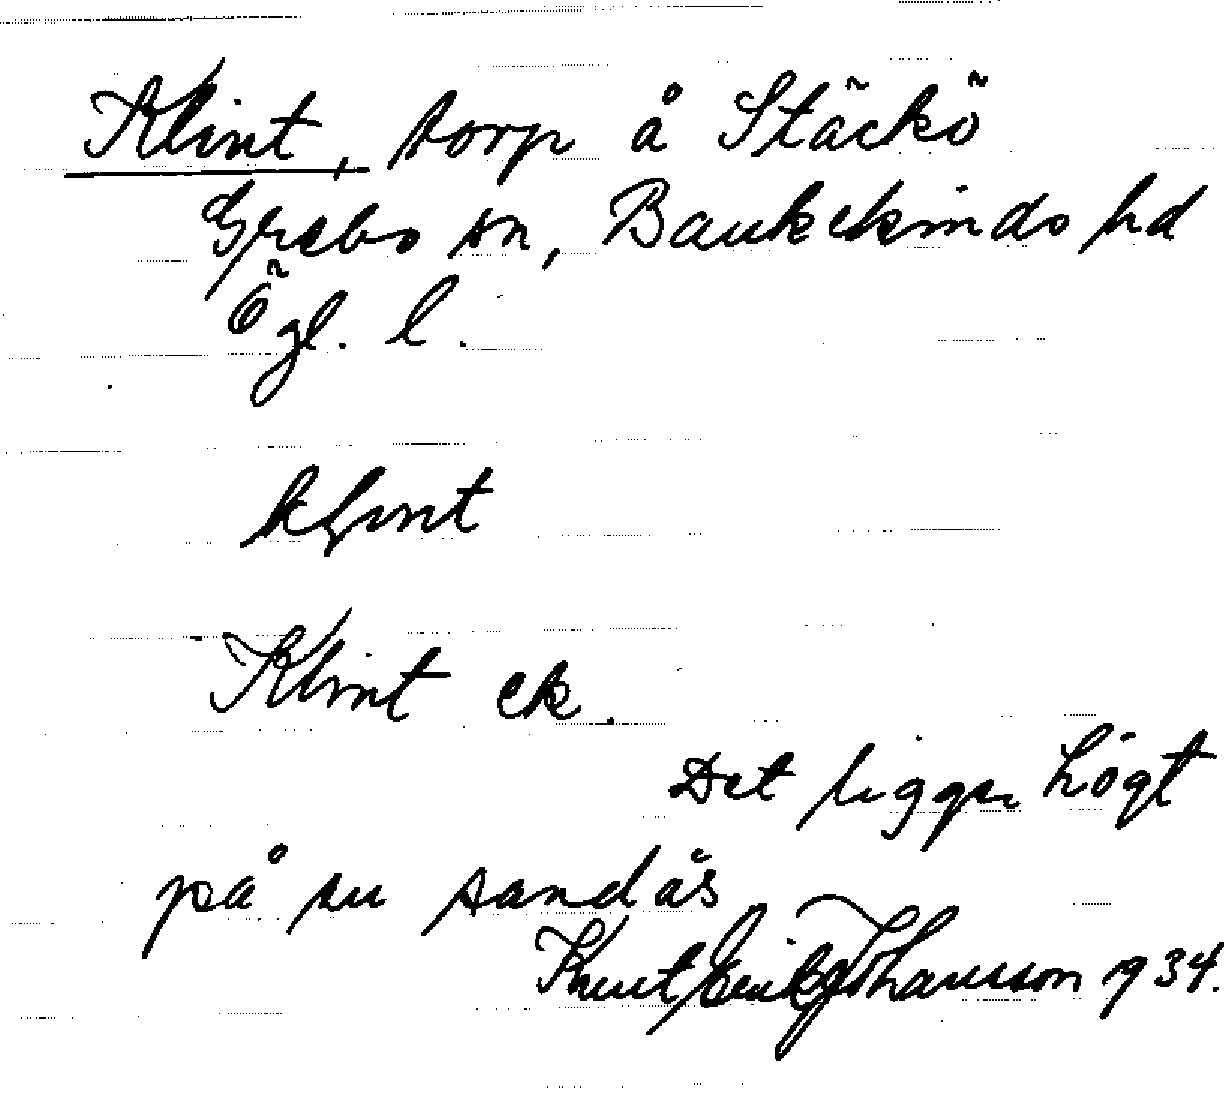 Klint, torp å Stäckö
Grebo sn, Bankekinds hd
Ögl. l.
Klint ek.
Det ligger högt
på en sandås
Knut Erik Johansson 1934.